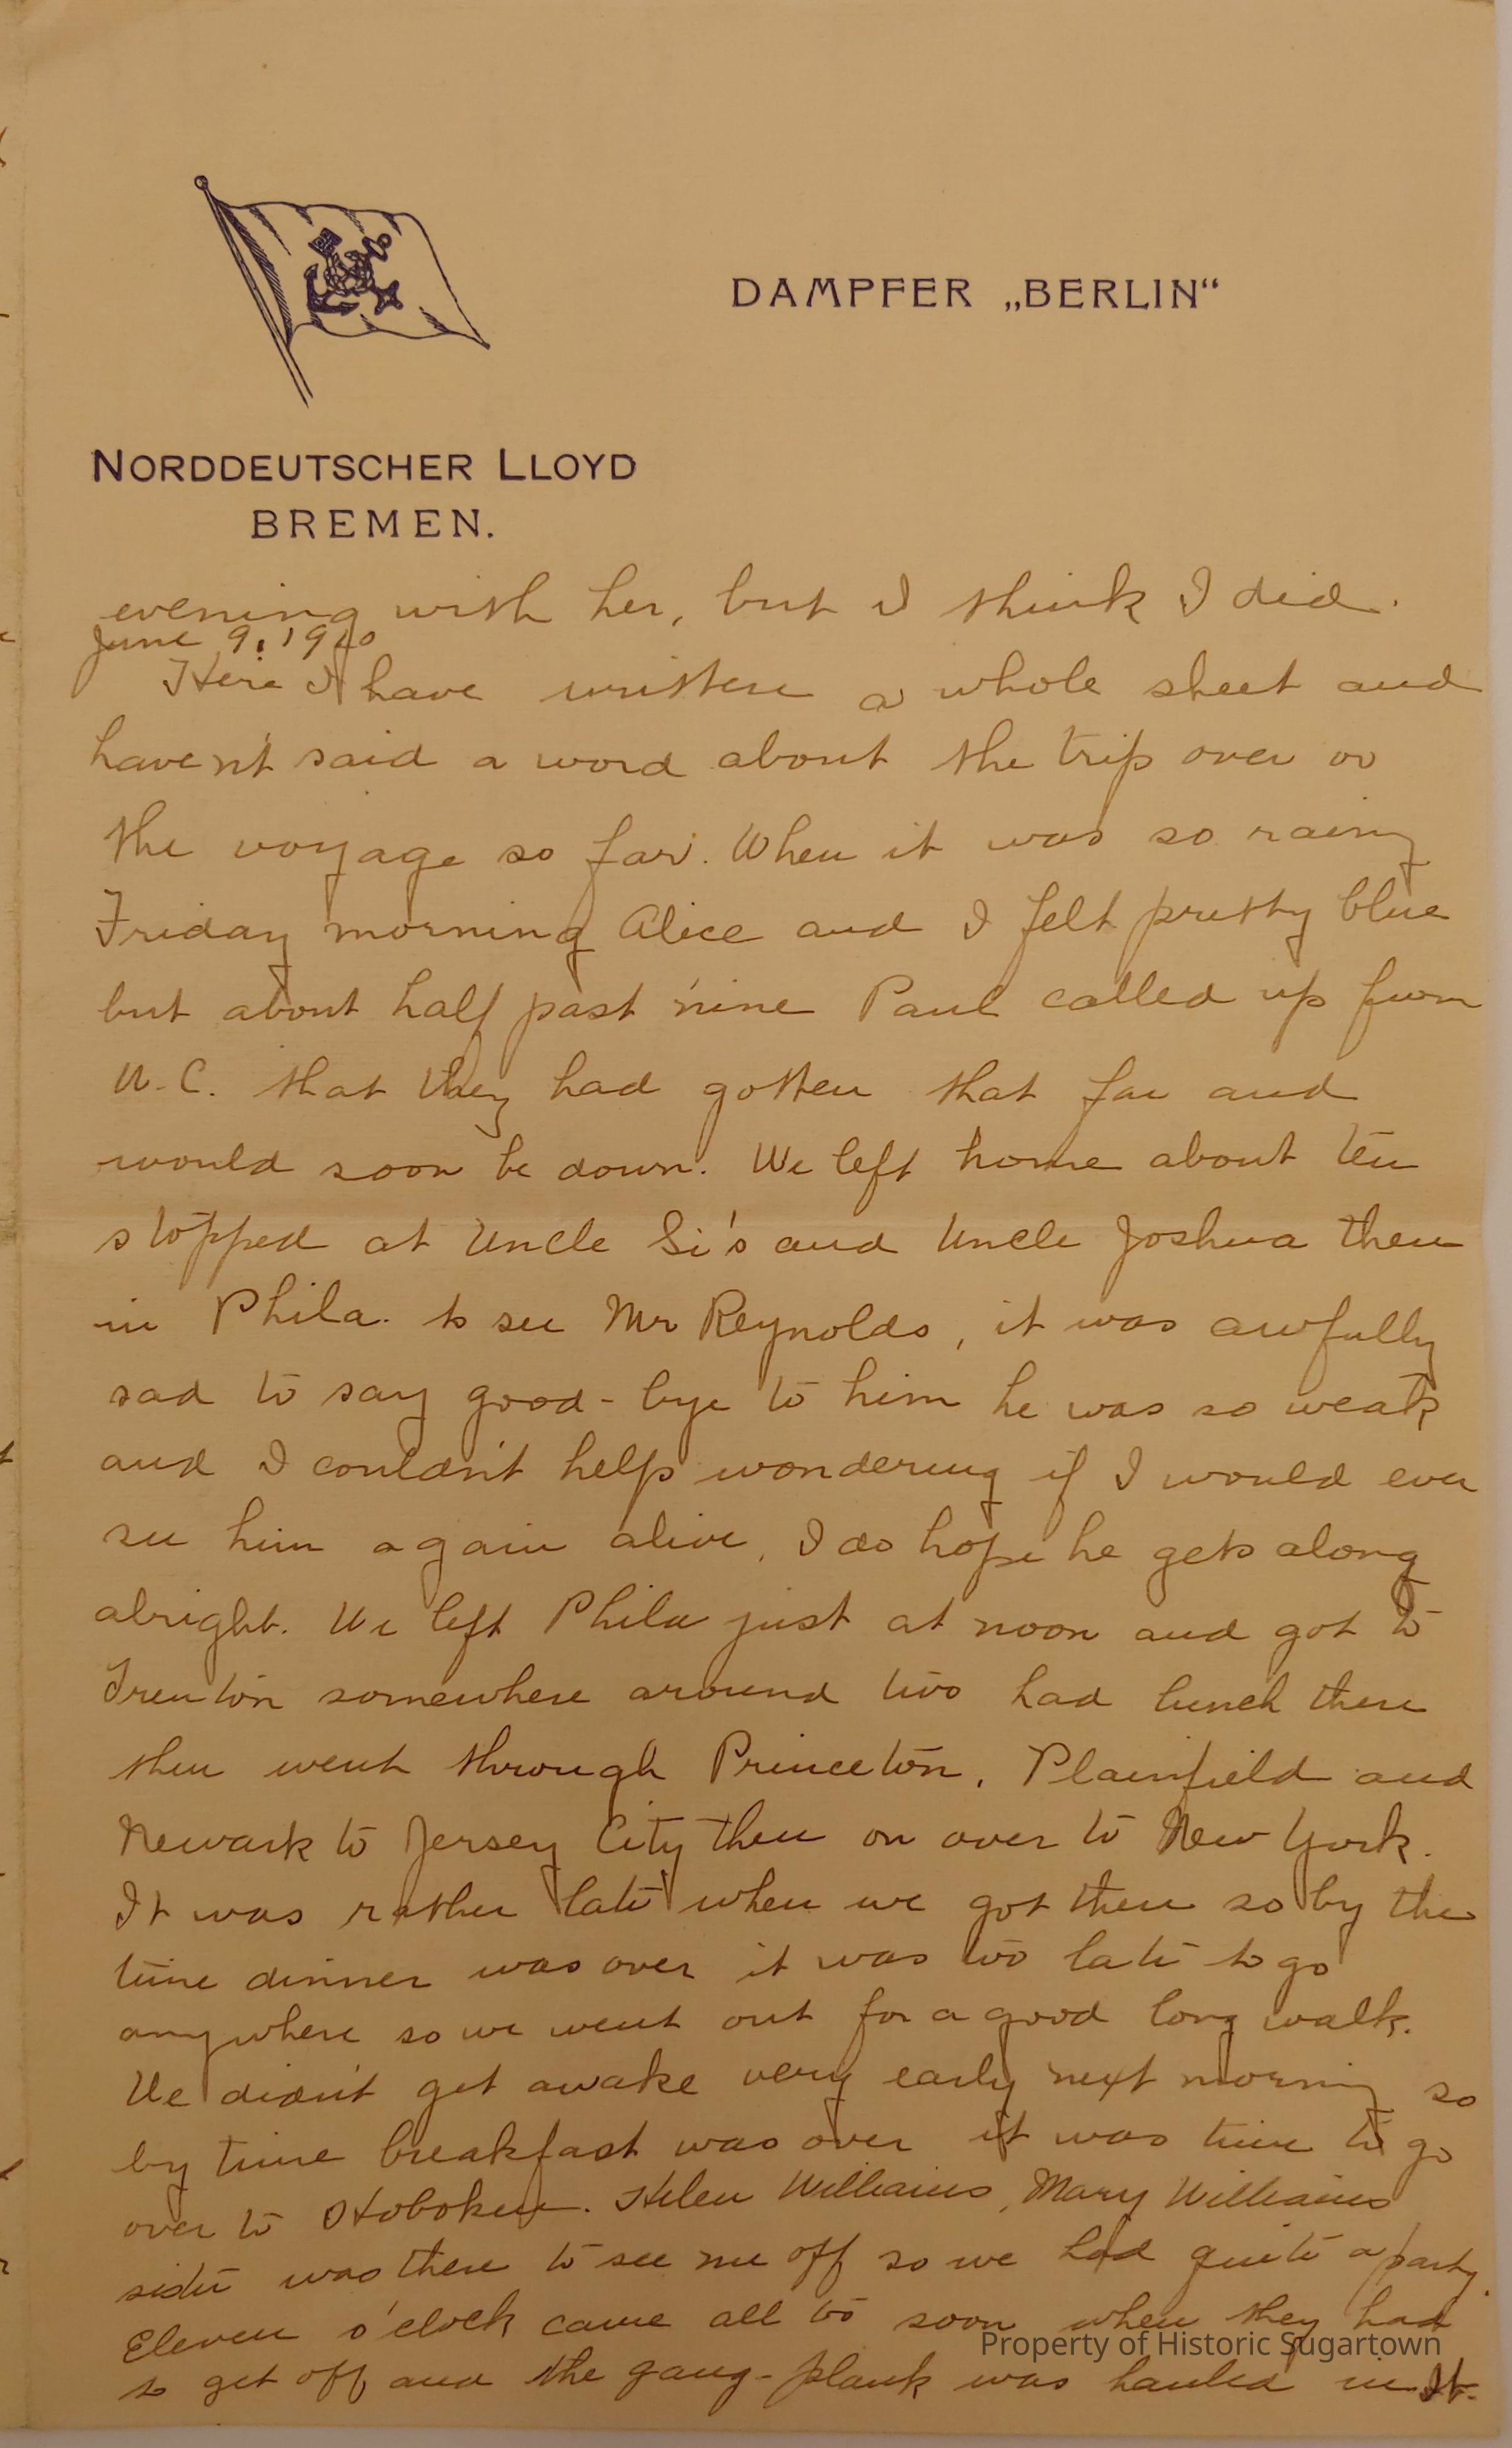 DAMPFER „BERLIN“
NORDDEUTSCHER LLOYD
BREMEN.
evening with her, but I think I did.
June 9, 1910
Here I have written a whole sheet and
haven't said a word about the trip over or
the voyage so far. When it was so rainy
Friday morning Alice and I felt pretty blue
but about half past nine Paul called up from
W. C. that they had gotten that far and
would soon be down. We left home about ten
stopped at Uncle Si's and Uncle Joshua then
in Phila. to see Mr Reynolds, it was awfully
sad to say good-bye to him he was so weak
and I couldn't help wondering if I would ever
see him again alive, I do hope he gets along
alright. We left Phila just at noon and got to
Trenton somewhere around two had lunch there
then went through Princeton, Plainfield and
Newark to Jersey City then on over to New York.
It was rather late when we got there so by the
time dinner was over it was too late to go
anywhere so we went out for a good long walk.
We didn't get awake very early next morning so
by time breakfast was over it was time to go
over to Hoboken. Helen Williams, Mary Williams
sister was there to see me off so we had quite a party.
Eleven o'clock came all too soon when they had
to get off and the gang-plank was hauled in. It
Property of Historic Sugartown